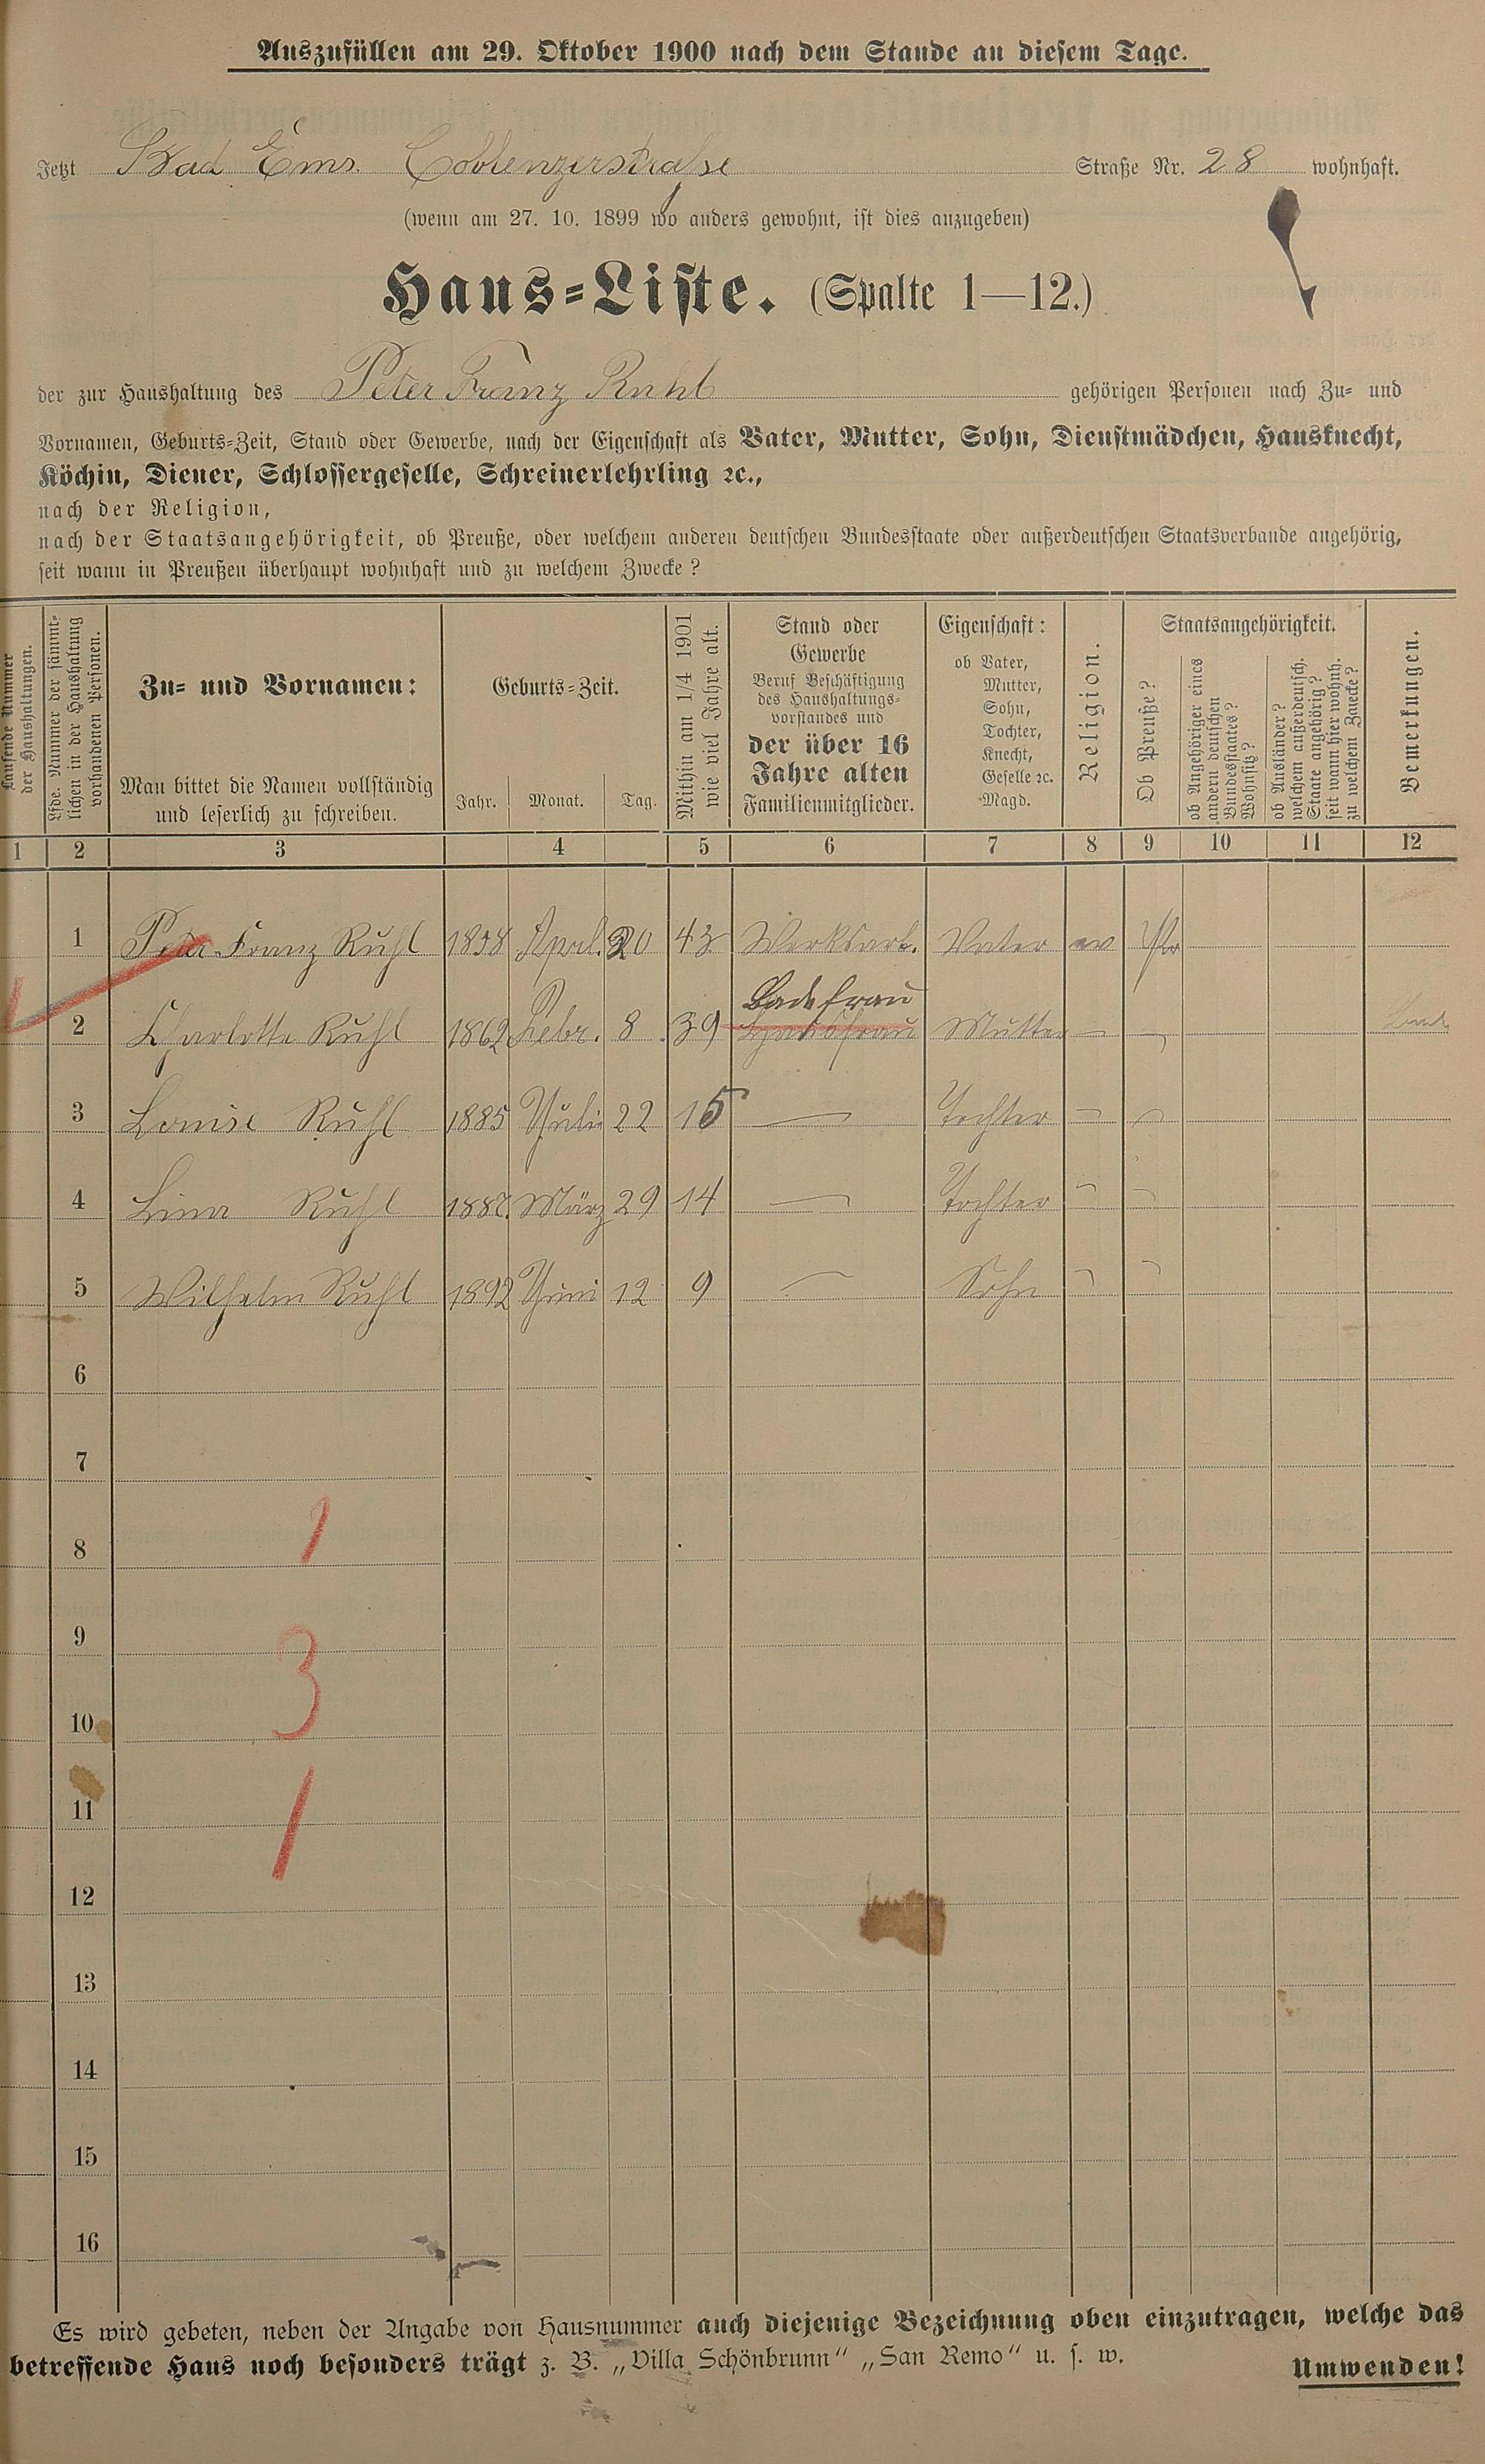 Auszufüllen am 29. Oktober 1900 nach dem Stande an diesem Tage.
Jetzt Bad Ems. Coblenzerstraße Straße Nr. 28 wohnhaft.
(wenn am 27. 10. 1899 wo anders gewohnt, ist dies anzugeben)
Haus-Liste. (Spalte 1—12.)
der zur Haushaltung des Peter Franz Ruhl gehörigen Personen nach Zu- und
Vornamen, Geburts-Zeit, Stand oder Gewerbe, nach der Eigenschaft als Vater, Mutter, Sohn, Dienstmädchen, Hausknecht,
Köchin, Diener, Schlossergeselle, Schreinerlehrling ꝛc.,
nach der Religion,
nach der Staatsangehörigkeit, ob Preuße, oder welchem anderen deutschen Bundesstaate oder außerdeutschen Staatsverbande angehörig,
seit wann in Preußen überhaupt wohnhaft und zu welchem Zwecke?
Laufende Nummer
der Haushaltungen.
Lfde. Nummer der sämmt-
lichen in der Haushaltung
vorhandenen Personen.
Zu- und Vornamen:
Man bittet die Namen vollständig
und leserlich zu schreiben.
Geburts-Zeit.
Jahr. Monat. Tag.
Mithin am 1/4 1901
wie viel Jahre alt.
Stand oder
Gewerbe
Beruf Beschäftigung
des Haushaltungs-
vorstandes und
der über 16
Jahre alten
Familienmitglieder.
Eigenschaft:
ob Vater,
Mutter,
Sohn,
Tochter,
Knecht,
Geselle ꝛc.
Magd.
Religion.
Staatsangehörigkeit.
Ob Preuße?
ob Angehöriger eines
andern deutschen
Bundesstaates?
Wohnsitz?
ob Ausländer?
welchem außerdeutsch.
Staate angehörig?
seit wann hier wohnh.
zu welchem Zwecke?
Bemerkungen.
1 2 3 4 5 6 7 8 9 10 11 12
1 Peter Franz Ruhl 1858 April. 20 43 Werksarb. Vater ev Pr
Badefrau
2 Charlotte Ruhl 1862 Febr. 8 39 Hausfrau Mutter —
3 Louise Ruhl 1885 Juli 22 15 — Tochter
4 Lina Ruhl 1887. März 29 14 — Tochter
5 Wilhelm Ruhl 1892 Juni 12 9 — Sohn
6
7
8
1
9
3
10
11
1
12
13
14
15
16
Es wird gebeten, neben der Angabe von Hausnummer auch diejenige Bezeichnung oben einzutragen, welche das
betreffende Haus noch besonders trägt z. B. „Villa Schönbrunn“ „San Remo“ u. s. w.
Umwenden!